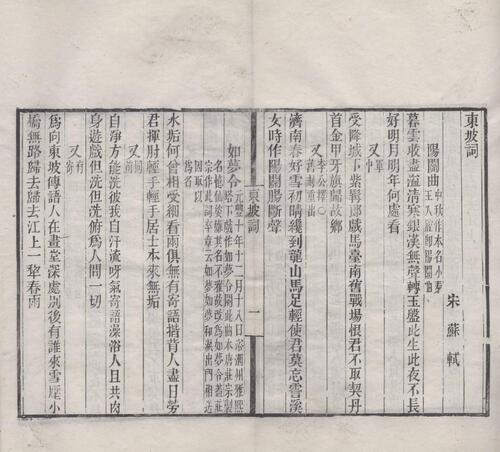 東坡詞
宋 蘇軾
陽關曲 中秋作本名小秦
王入腔即陽關曲
暮雲收盡溢清寒銀漢無聲轉玉盤此生此夜不長
好明月明年何處看
又 軍中
受降城下紫髯郎戲馬臺南舊戰場恨君不取契丹
首金甲牙旗歸故鄉
又 李公擇
舊刻重出
濟南春好雪初晴纔到龍山馬足輕使君莫忘霅溪
女時作陽關腸斷聲
東坡詞
一
如夢令 元豐七年十二月十八日浴泗州雍熙
塔下戲作如夢令闋此曲本唐莊宗製
名憶仙姿嫌其名不雅故改為如夢令蓋莊
宗作此詞卒章云如夢如夢和淚出門相送
因取以
為名
水垢何曾相受細看兩俱無有寄語揩背人盡日勞
君揮肘輕手輕手居士本來無垢
又 同前
自淨方能洗彼我自汗流呀氣寄語澡浴人且共肉
身遊戲但洗但洗俯為人間一切
又 有寄
為向東坡傳語人在畫堂深處別後有誰來雪壓小
橋無路歸去歸去江上一犂春雨